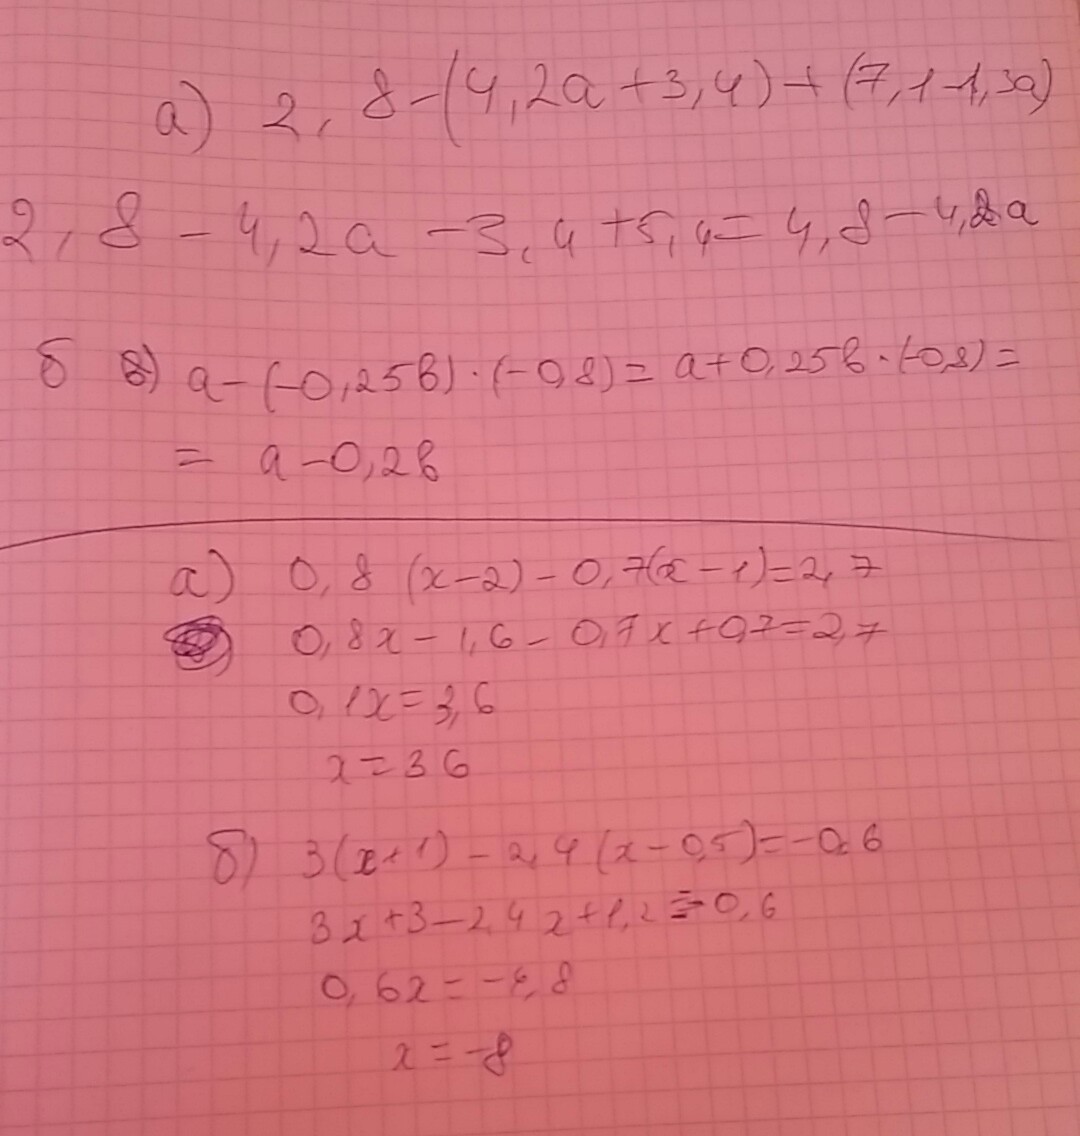 а) 2,8-(4,2а+3,4)+(7,1-1,3а)
2,8-4,2а-3,4+5,4=4,8-4,2а
б в) а-(-0,25в)·(-0,8)=а+0,25в·(-0,8)=
= а-0,2в
а) 0,8(x-2)-0,7(x-1)=2,7
0,8x-1,6-0,7x+0,7=2,7
0,1x=3,6
x=36
б) 3(x+1)-2,4(x-0,5)=-0,6
3x+3-2,4x+1,2=-0,6
0,6x=-4,8
x=-8